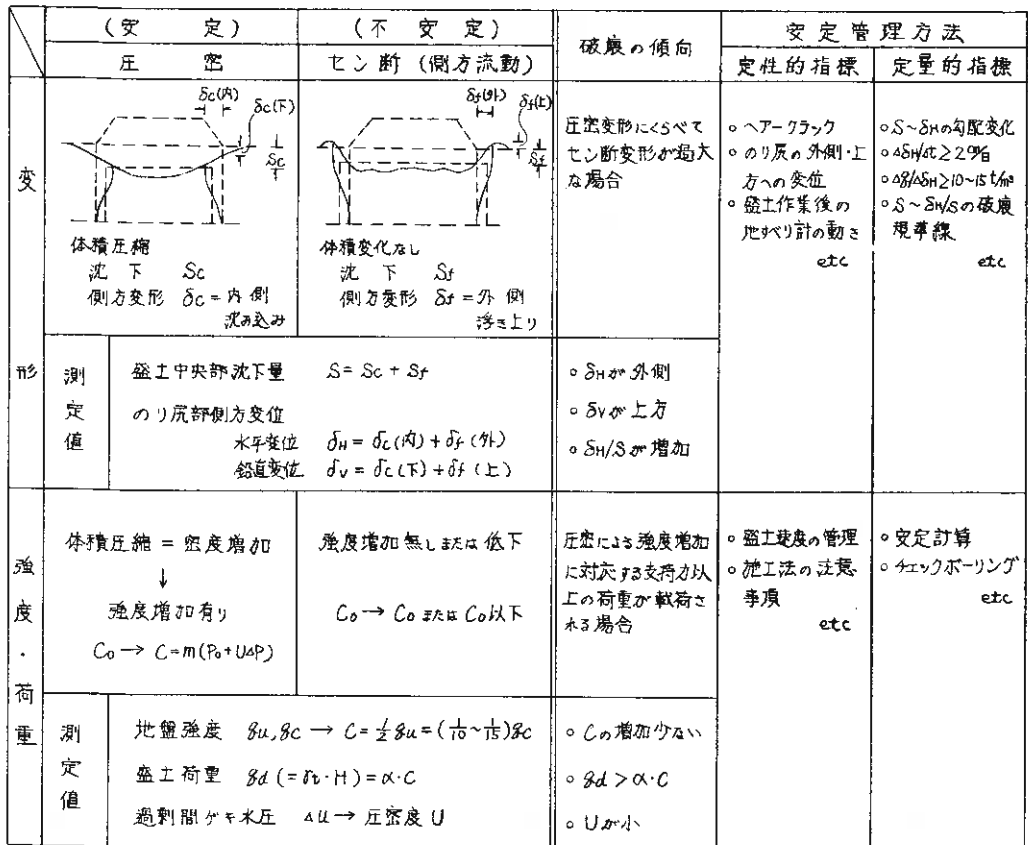 (安 定)
(不 安 定)
破壊の傾向
安定管理方法
圧 密
セン断 (側方流動)
定性的指標
定量的指標
変
形
δc(内)
δc(下)
Sc
体積圧縮
沈 下 Sc
側方変形 δc = 内 側
沈み込み
δf(外)
δf(上)
Sf
体積変化なし
沈 下 Sf
側方変形 δf = 外 側
浮き上り
圧密変形にくらべて
セン断変形が過大
な場合
○ ヘアークラック
○ のり尻の外側・上
方への変位
○ 盛土作業後の
地すべり計の動き
etc
○ S～δHの勾配変化
○ ΔδH/Δt ≥ 2 cm/日
○ Δq/ΔδH ≥ 10～15 t/m³
○ S～δH/Sの破壊
規準線
etc
測
定
値
盛土中央部沈下量 S = Sc + Sf
のり尻部側方変位
水平変位 δH = δc (内) + δf (外)
鉛直変位 δv = δc (下) + δf (上)
○ δHが外側
○ δvが上方
○ δH/Sが増加
強
度
・
荷
重
体積圧縮 = 密度増加
↓
強度増加有り
Co → C = m(Po + UΔP)
強度増加無しまたは低下
Co → Co または Co以下
圧密による強度増加
に対応する支持力以
上の荷重が載荷さ
れる場合
○ 盛土速度の管理
○ 施工法の注意
事項
etc
○ 安定計算
○ チェックボーリング
etc
測
定
値
地盤強度 qu, qc → C = 1/2 qu = (1/10 ~ 1/15) qc
盛土荷重 qd (= γt・H) = α・C
過剰間ゲキ水圧 Δu → 圧密度 U
○ Cの増加少ない
○ qd > α・C
○ Uが小